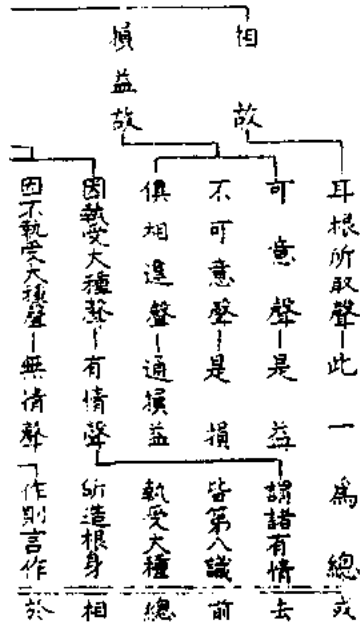 相故
損益故
耳根所取聲—此一為總
可意聲—是益
不可意聲—是損
俱相違聲—通損益
因執受大種聲—有情聲
因不執受大種聲—無情聲
謂諸有情
皆第八識
執受大種
所造根身
作則言作
或
去
前
總
相
於